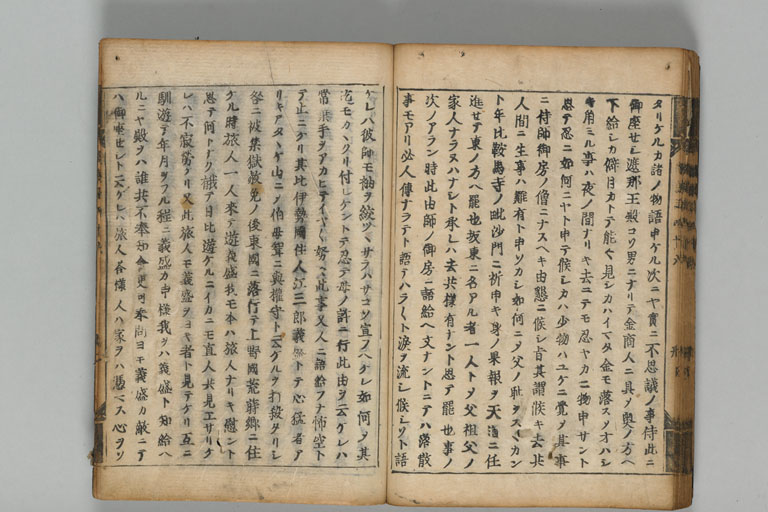 タリケルカ諸ノ物語申ケル次ニヤ實ニ不思議ノ事侍此ニ
御座セシ遮那王殿コソ男ニナリテ金商人ニ具シ奥ノ方ヘ
下給シカ御目カトテ能々見シカハイマタ金モ落スタオハシ
キ角ミル事ハ夜ノ間ナリキ去ニテモ忍ヤカニ物申サント
思テ忍ニ如何ニヤト申テ候シカハ少物ハユケニ覺ヲ其事
ニ侍師御房ノ僧ニナスヘキ由懇ニ候シ旨其謂候キ去共
人間ニ生事ハ難有ト申ソカシ如何ニヲ父ノ耻ヲスヽカン
ト年比鞍馬寺ノ毗沙門ニ祈申キ身ノ果報ヲ天道ニ任
進セテ東ノ方ヘ罷也坂東ニ名アル者一人トヲ父祖父ノ
家人ナラヌハナシト承レハ去共様有ナント思テ罷也事ノ
次ノアラン時此由師ノ御房ニ語給ヘ文ナントニテハ落散
事モアリ必人傳ナラテト語テハラ〳〵ト涙ヲ流シ候シソト語
ケレハ彼師モ袖ヲ絞ツヽサラハサコソ宣ノヘケレ如何ヲ其
モカヽクリ付レケントテ忍テ母ノ許ニ行此由ヲ云ケレハ
常葉手ヲアカヒテ努々此事又人ニ語給フナ怖空ト
テ止ニケリ其比伊勢國住人江三郎義盛トテ心猛者ア
リキアタヽケ山ニソ伯母聟ニ與權守ト云ケルヲ打殺タリシ
咎ニ被禁獄赦免ノ後東國ニ落行テ上野國荒蒔郷ニ住
ケル時旅人一人来テ遊義盛我モ本ハ旅人ナリキ慰ント
思テ何トナク請テ日比遊ケルニイカニモ直人共見エサリケ
レハ不寂當ケリ又此旅人モ義盛ヲヨキ者ト見テケリ互ニ
馴遊テ年月ヲフル程ニ義盛カ申様我ヲハ義盛ト知給ヘ
ルニヤ殿ヲハ誰共不奉知今更可奉問ヨモ義盛カ敵ニテ
ハ御座セシト云ケレハ旅人吾儘人ハ家ヲハ憑ヘス心ヲソ